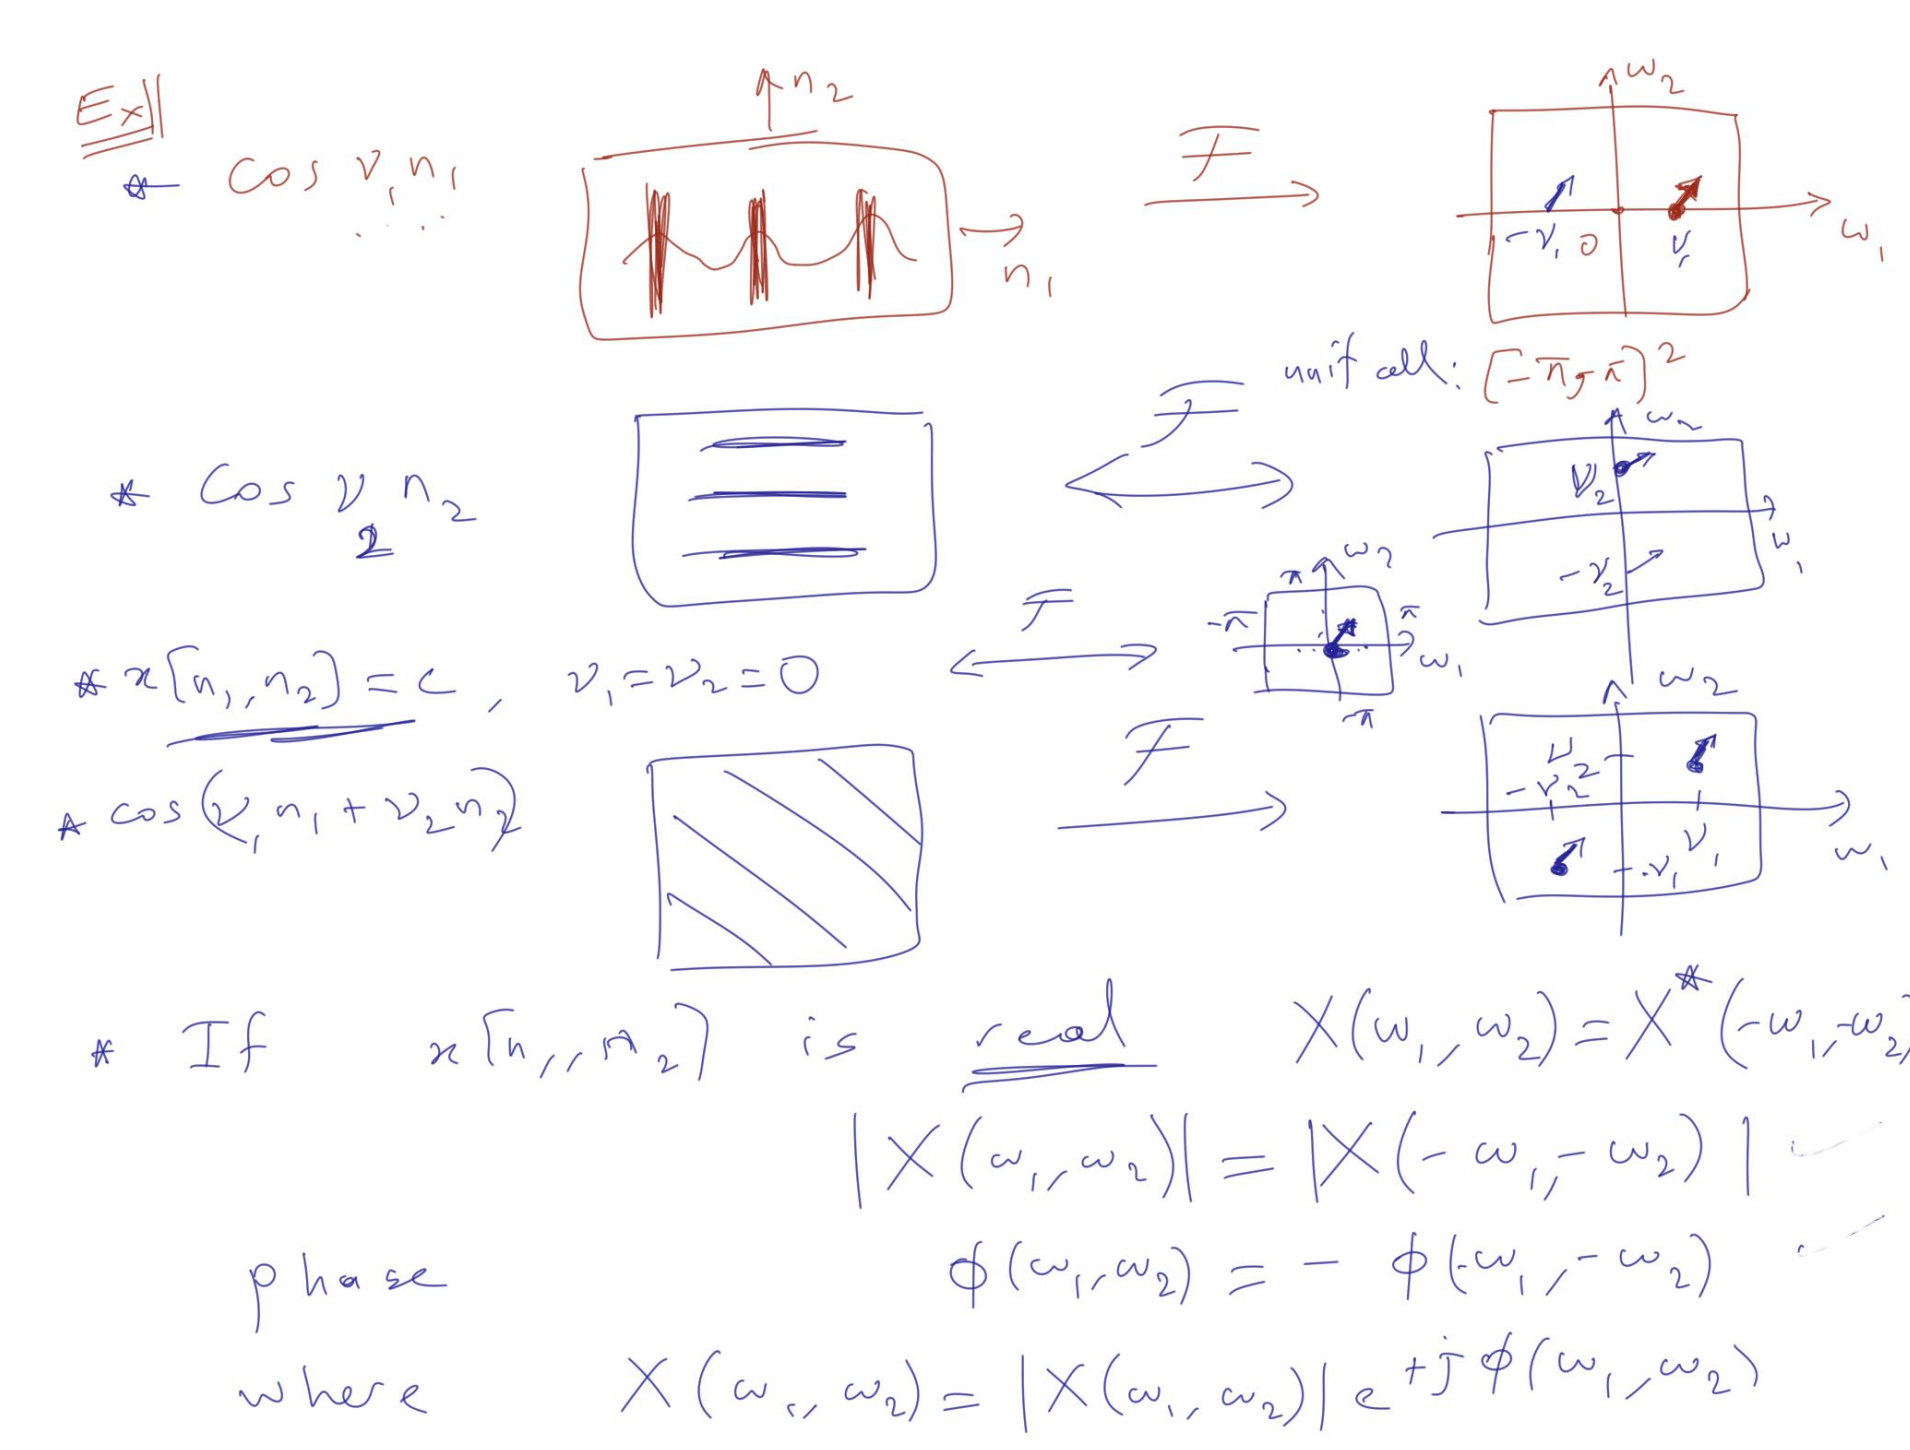 Ex
* cos ν₁n₁
n₂
n₁
F
ω₂
-ν₁ 0 ν₁
ω₁
unit cell: [-π, π)²
* cos ν₂ n₂
F
ω₂
ν₂
-ν₂
ω₁
* x[n₁, n₂] = c, ν₁ = ν₂ = 0
F
ω₂
π
-π π
ω₁
-π
* cos(ν₁n₁ + ν₂n₂)
F
ω₂
ν₂
-ν₂
ν₁
-ν₁
ω₁
* If x[n₁, n₂] is real X(ω₁, ω₂) = X*(-ω₁, -ω₂)
|X(ω₁, ω₂)| = |X(-ω₁, -ω₂)|
phase ϕ(ω₁, ω₂) = - ϕ(-ω₁, -ω₂)
where X(ω₁, ω₂) = |X(ω₁, ω₂)| e^{+jϕ(ω₁, ω₂)}